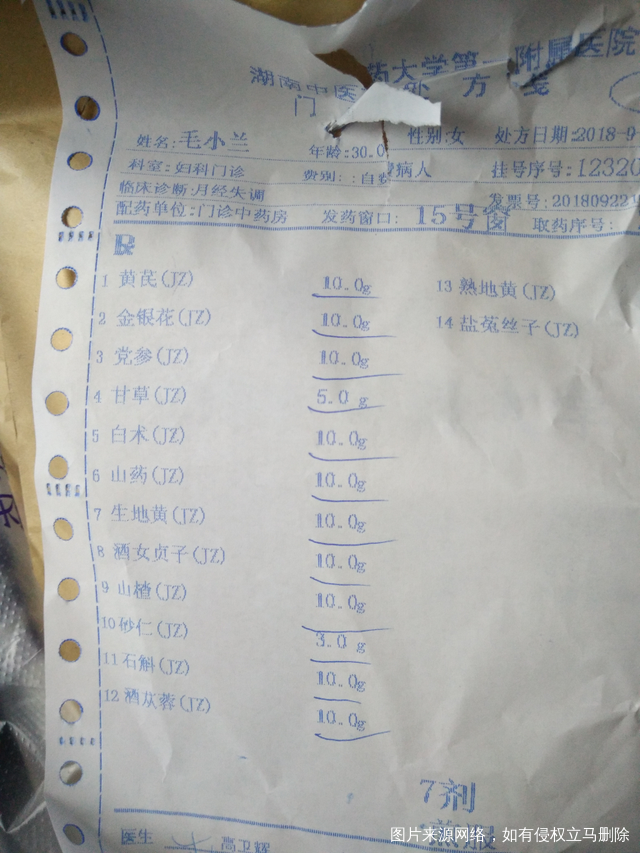 湖南中医药大学第一附属医院
门 处 方 笺
姓名:毛小兰 年龄:30.0 性别:女 处方日期:2018-9
科室:妇科门诊 费别:自费 病人 挂号序号:12320
临床诊断:月经失调 发票号:201809221
配药单位:门诊中药房 发药窗口: 15号窗 取药序号:
R
1 黄芪(JZ) 10.0g 13 熟地黄(JZ)
2 金银花(JZ) 10.0g 14 盐菟丝子(JZ)
3 党参(JZ) 10.0g
4 甘草(JZ) 5.0 g
5 白术(JZ) 10.0g
6 山药(JZ) 10.0g
7 生地黄(JZ) 10.0g
8 酒女贞子(JZ) 10.0g
9 山楂(JZ) 10.0g
10砂仁(JZ) 3.0 g
11石斛(JZ) 10.0g
12酒苁蓉(JZ) 10.0g
7剂
医生 高卫辉 煎服
图片来源网络,如有侵权立马删除